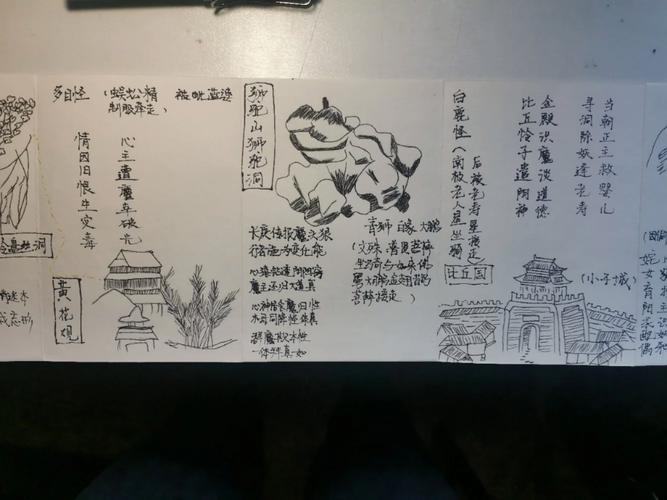 丝洞
情迷本
戒忘形
多目怪 (蜈蚣精 被毗蓝婆
制服牵走)
心主遭魔幸破光
情因旧恨生灾毒
黄花观
狮驼山狮驼洞
长庚传报魔头狠
行者施为变化能
心猿钻透阴阳窍
魔王还归大道真
心神居舍魔归性
木母同降怪体真
群魔欺本性
一体拜真如
青狮 白象 大鹏
(文殊 普贤菩萨
坐骑与如来佛
大鹏金翅鸟的
菩萨接走)
当朝正主救婴儿
寻洞除妖逢老寿
金殿识魔谈道德
比丘怜子遣阴神
后被老寿星接走)
白鹿怪(南极老人星坐骑
比丘国
(小子城)
姹女育阳求配偶